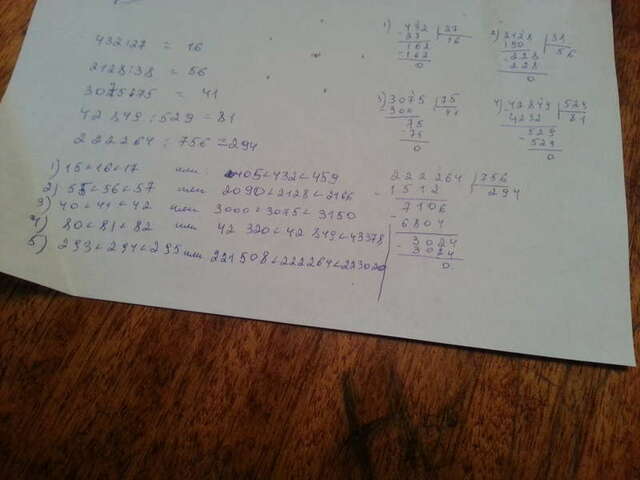 432:27 = 16
2128:38 = 56
3075:75 = 41
42849:529 = 81
222264:756 = 294
1) 15<16<17 или 405<432<459
2) 55<56<57 или 2090<2128<2166
3) 40<41<42 или 3000<3075<3150
4) 80<81<82 или 42320<42849<43378
5) 293<294<295 или 221508<222264<223020
1) 432 27
-27 16
162
-162
0
2) 2128 38
190 56
-228
228
0
3) 3075 75
-300 41
75
-75
0
4) 42849 529
4232 81
-529
529
0
222264 756
-1512 294
7106
-6804
3024
-3024
0